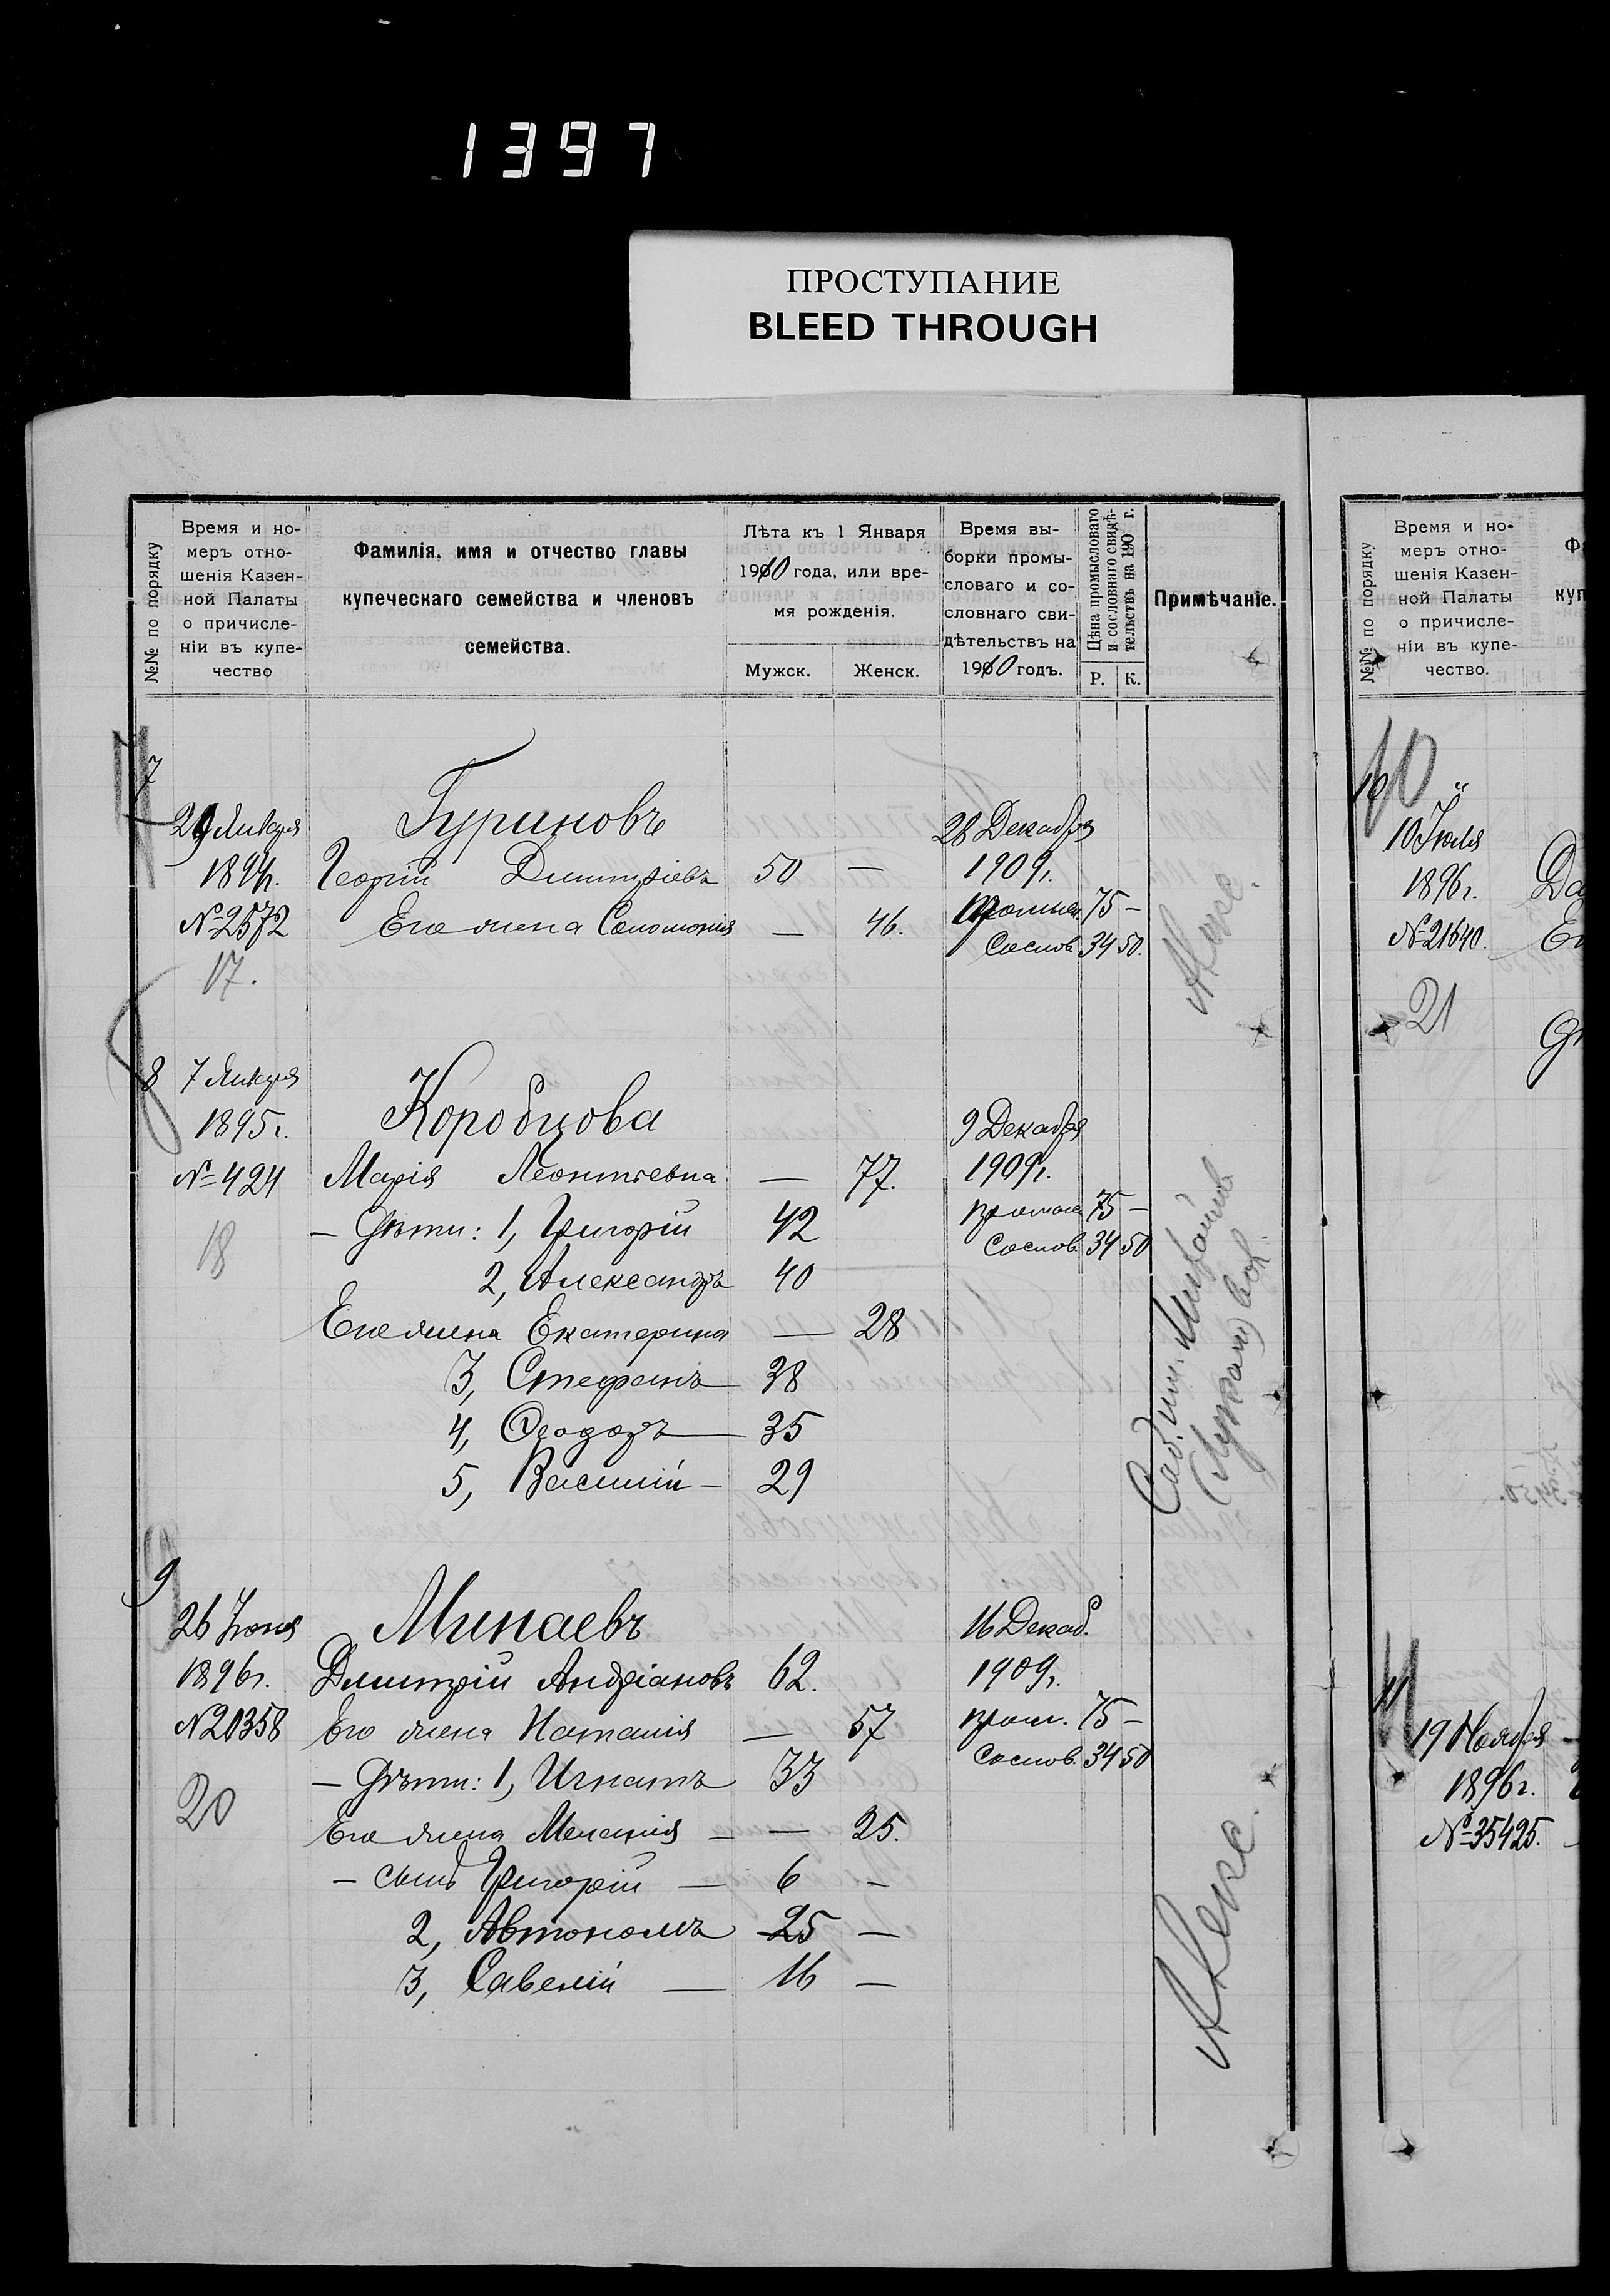 1397
ПРОСТУПАНИЕ
BLEED THROUGH
№№ по порядку
Время и но-
меръ отно-
шенія Казен-
ной Палаты
о причисле-
ніи въ купе-
чество
Фамилія, имя и отчество главы
купеческаго семейства и членовъ
семейства.
Лѣта къ 1 Января
1910 года, или вре-
мя рожденія.
Мужск.
Женск.
Время вы-
борки промы-
словаго и со-
словнаго сви-
дѣтельствъ на
1910 годъ.
Цѣна промысловаго
и сословнаго свидѣ-
тельствъ на 190 г.
Р.
К.
Примѣчаніе.
7
29 Января Гуриновъ 28 Декабря
189 г. Георгій Дмитріевъ 50 — 1909 г.
№ 2572 Его жена Соломонія — 46. Промысл. 75 —
Сослов. 34 50.
17.
Алекс.
8 7 Января
1895 г. Коробцова 9 Декабря
№ 424 Марія Леонтьевна — 77. 1909 г.
— Дѣти: 1, Григорій 42 промысл. 75 —
18 Сослов. 34 50
2, Александръ 40
Его жена Екатерина — 28
3, Стефанъ 38
4, Ѳеодоръ 35
5, Василій — 29
9
26 Іюня Минаевъ 16 Декаб.
1896 г. Дмитрій Андріановъ 62. 1909 г.
№ 20358 Его жена Наталія — 57 пром. 75 —
— Дѣти: 1, Игнатъ 33 Сослов. 34 50
20
Его жена Меланія — — 25.
— сынъ Григорій — 6 —
2, Автономъ 25 —
3, Савелій — 16 —
Алекс.
№№ по порядку
Время и но-
меръ отно-
шенія Казен-
ной Палаты
о причисле-
ніи въ купе-
чество.
Ф
куп
10
10 Іюля
1896 г. Да
№ 21640. Е
21
11
19 Ноября
1896 г.
№ 35425.